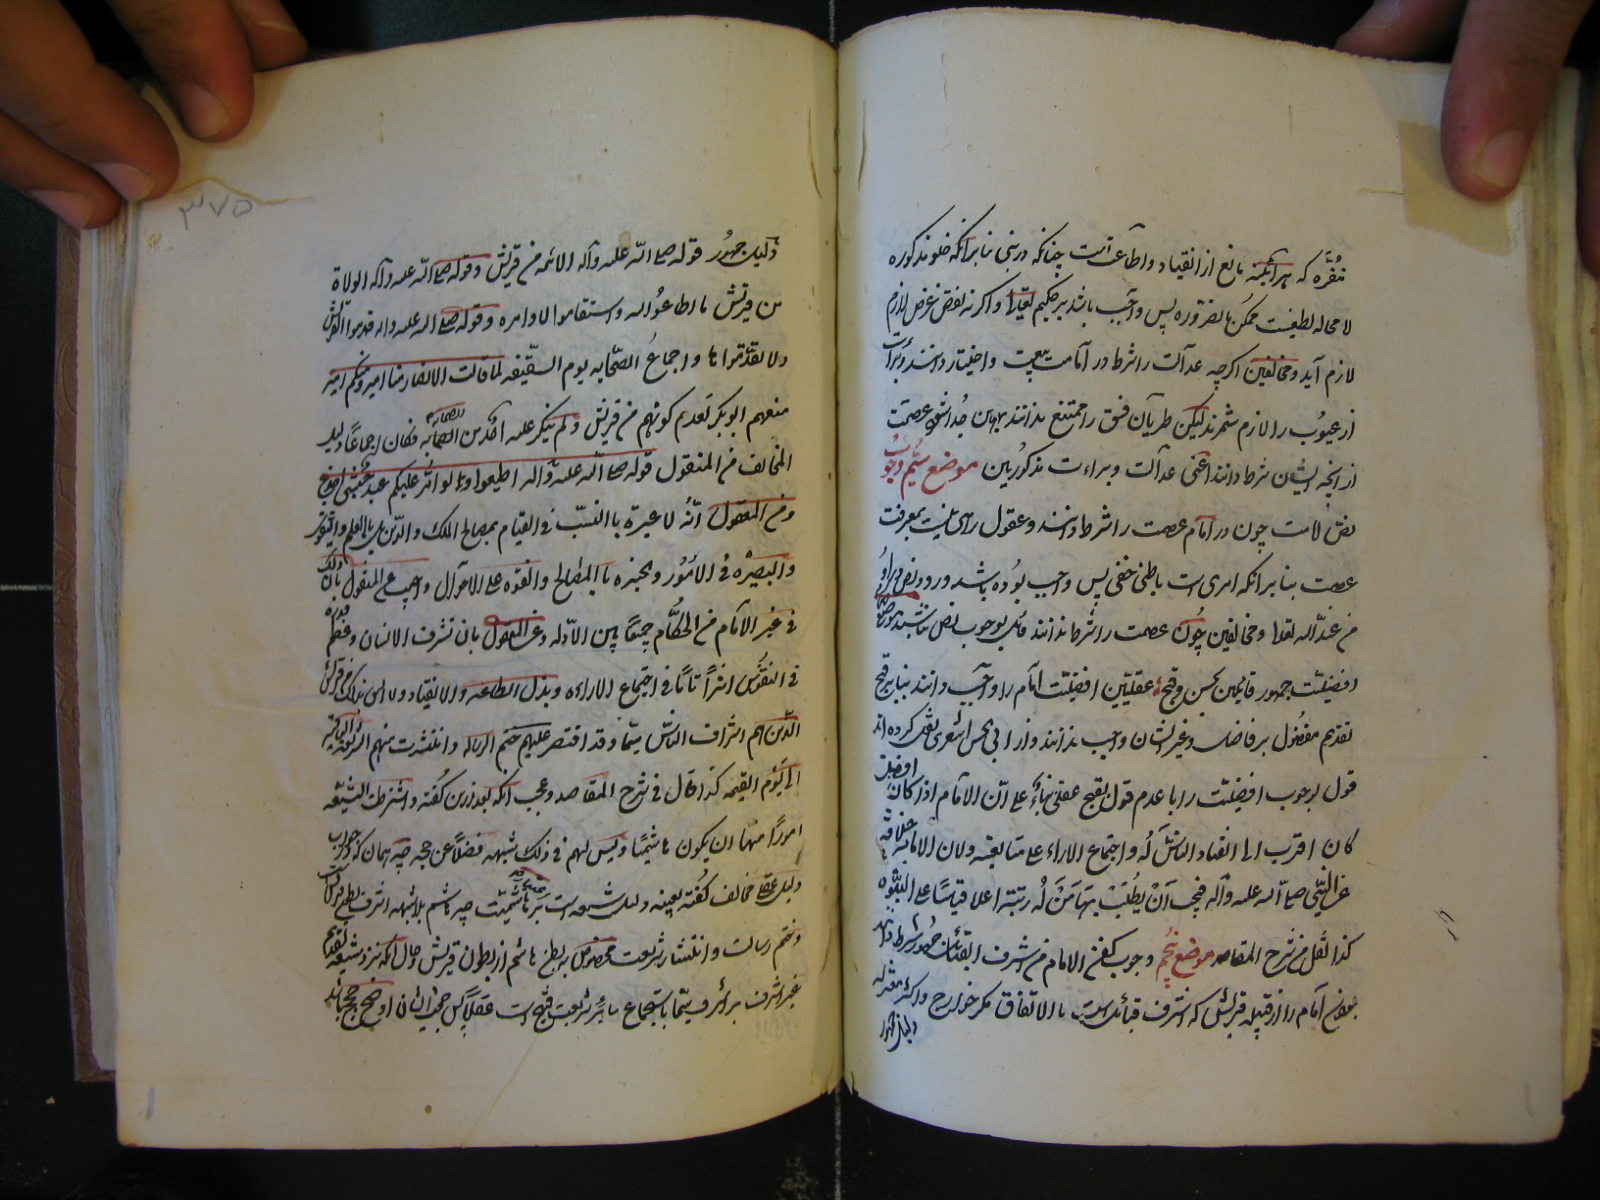 منفّره که هرآینه مانع از انقیاد و اطاعت است چنانکه در نبی بنا برانکه خلو مذکوره
لا محاله لطفیست ممکن بالضروره پس واجب باشد بر حکیم تعالی و اگر نه نقض غرض لازم
لازم آید و مخالفین اگرچه عدالت را شرط در امامت بیعت و اختیار دانند و براءت
از عیوب را لازم شمرند لیکن طریان فسق را ممتنع ندانند بهمین جدا شود عصمت
از آنچه ایشان شرط دانند اعنی عدالت و براءت مذکورتین موضع سیّم وجوب
نص لامت چون در امام عصمت را شرط دانند و عقول را راهی نیست بمعرفت
عصمت بنا برانکه امری است باطنی خفی پس واجب بوده باشد ورود نص برو
من عند الله تعالی و مخالفین چون عصمت را شرط ندانند قائل بوجوب نص نباشند موضع
افضلیّت جمهور قائلین بحسن و قبح عقلیّین افضلیّت امام را واجب دانند بنا بر قبح
تقدیم مفضول بر فاضل و غیر ایشان واجب ندانند و از ابی الحسن اشعری نقل کرده اند
قول بوجوب افضیلّت را با عدم قول بقبح عقلی بناءً علی انّ الامام اذا کان افضل
کان اقرب الی انقیاد الناس لَه و اجتماع الاراء علی متابعته و لان الامامه خلافة
عن النبیّ صلی الله علیه وآله فیجب اَنْ یُطلَبْ بها مَنْ لَه رتبته اعلا قیاسًا علی النبوّه
کذا نقل من شرح المقاصد موضع پنجم وجوب کون الامام من اشرف القبائل جمهور شرط دانند
بودن امام را از قبیله قریش که اشرف قبائل است بالاتفاق مگر خوارج و اکثر معتزله
دلیل جمهور
٣٧٥
دلیل جمهور قوله صلی الله علیه وآله الائمه من قریش وقوله صلی الله علیه وآله الولاة
من قریش ما اطاعوا الله واستقاموا لاوامره وقوله صلی الله علیه واله قدموا قریش
ولا تقدّموا ها واجماعُ الصّحابه یوم السّقیفه لما قالت الانصار منا امیر ومنکم امیر
منعهم ابوبکر بعدم کونهم من قریش ولم ینکر علیه احد من الصحابه فکان اجماعًا دلیل
المخالف من المنقول قوله صلی الله علیه واله اطیعوا ولو امّر علیکم عبد حبشی اجدع
ومن المعقول انّه لا عبرة باالنسبّ فی القیام بمصالح الملک والدّین بل باالعلم والتقوی
والبصیرة فی الامُور والخبره باالمصالح والقوه علی الاحوال واجیب عن المنقول بان ذلک
فی غیر الامام من الحکّام جمعًا بین الادّله وعن المعقول بان لشرف الانسان وعظم قدره
فی النفوس اثراً تامًّا فی اجتماع الاراء وبذل الطاعه والانقیاد ولا الیق بذلک من قریش
الّذین هم اشراف الناس سیّما وقد اقتصر علیهم ختم الرساله وانتشرت منهم الشریعة الباقیه
الی یَوم القیمه کذا قال فی شرح المقاصد وعجب آنکه بعد ازین گفته واشترطت الشیعه
امورًا منها ان یکون هاشمیًّا ولیس لهم فی ذلک شبهه فضلًا عن حجه چه همان که در جواب
دلیل عقلی مخالف گفته بعینه دلیل شیعه است بر هاشمیّت چه هاشم بلاشبهه اشرف بطون قریش
وختم رسالت وانتشار شریعت مخصوص به بطن هاشم از بطون قریش وحال آنکه نزد شیعه تقدیم
غیر اشرف بر اشرف سیّما با استجماع سایر شرایط قبیح است عقلاً پس حجه ایشان اوضح حجج باشد